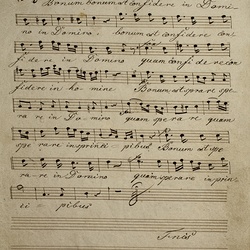 Bonum bonum est confidere in Domi-
no in Domino, bonum est confidere con-
fidere in Domino quam confidere con
fidere in homine Bonum est sperare spe
rare in Domino quam sperare quam
sperare in principibus Bonum est spe
ra-re in Domino quam sperare in prin-
ci - pibus
Finis